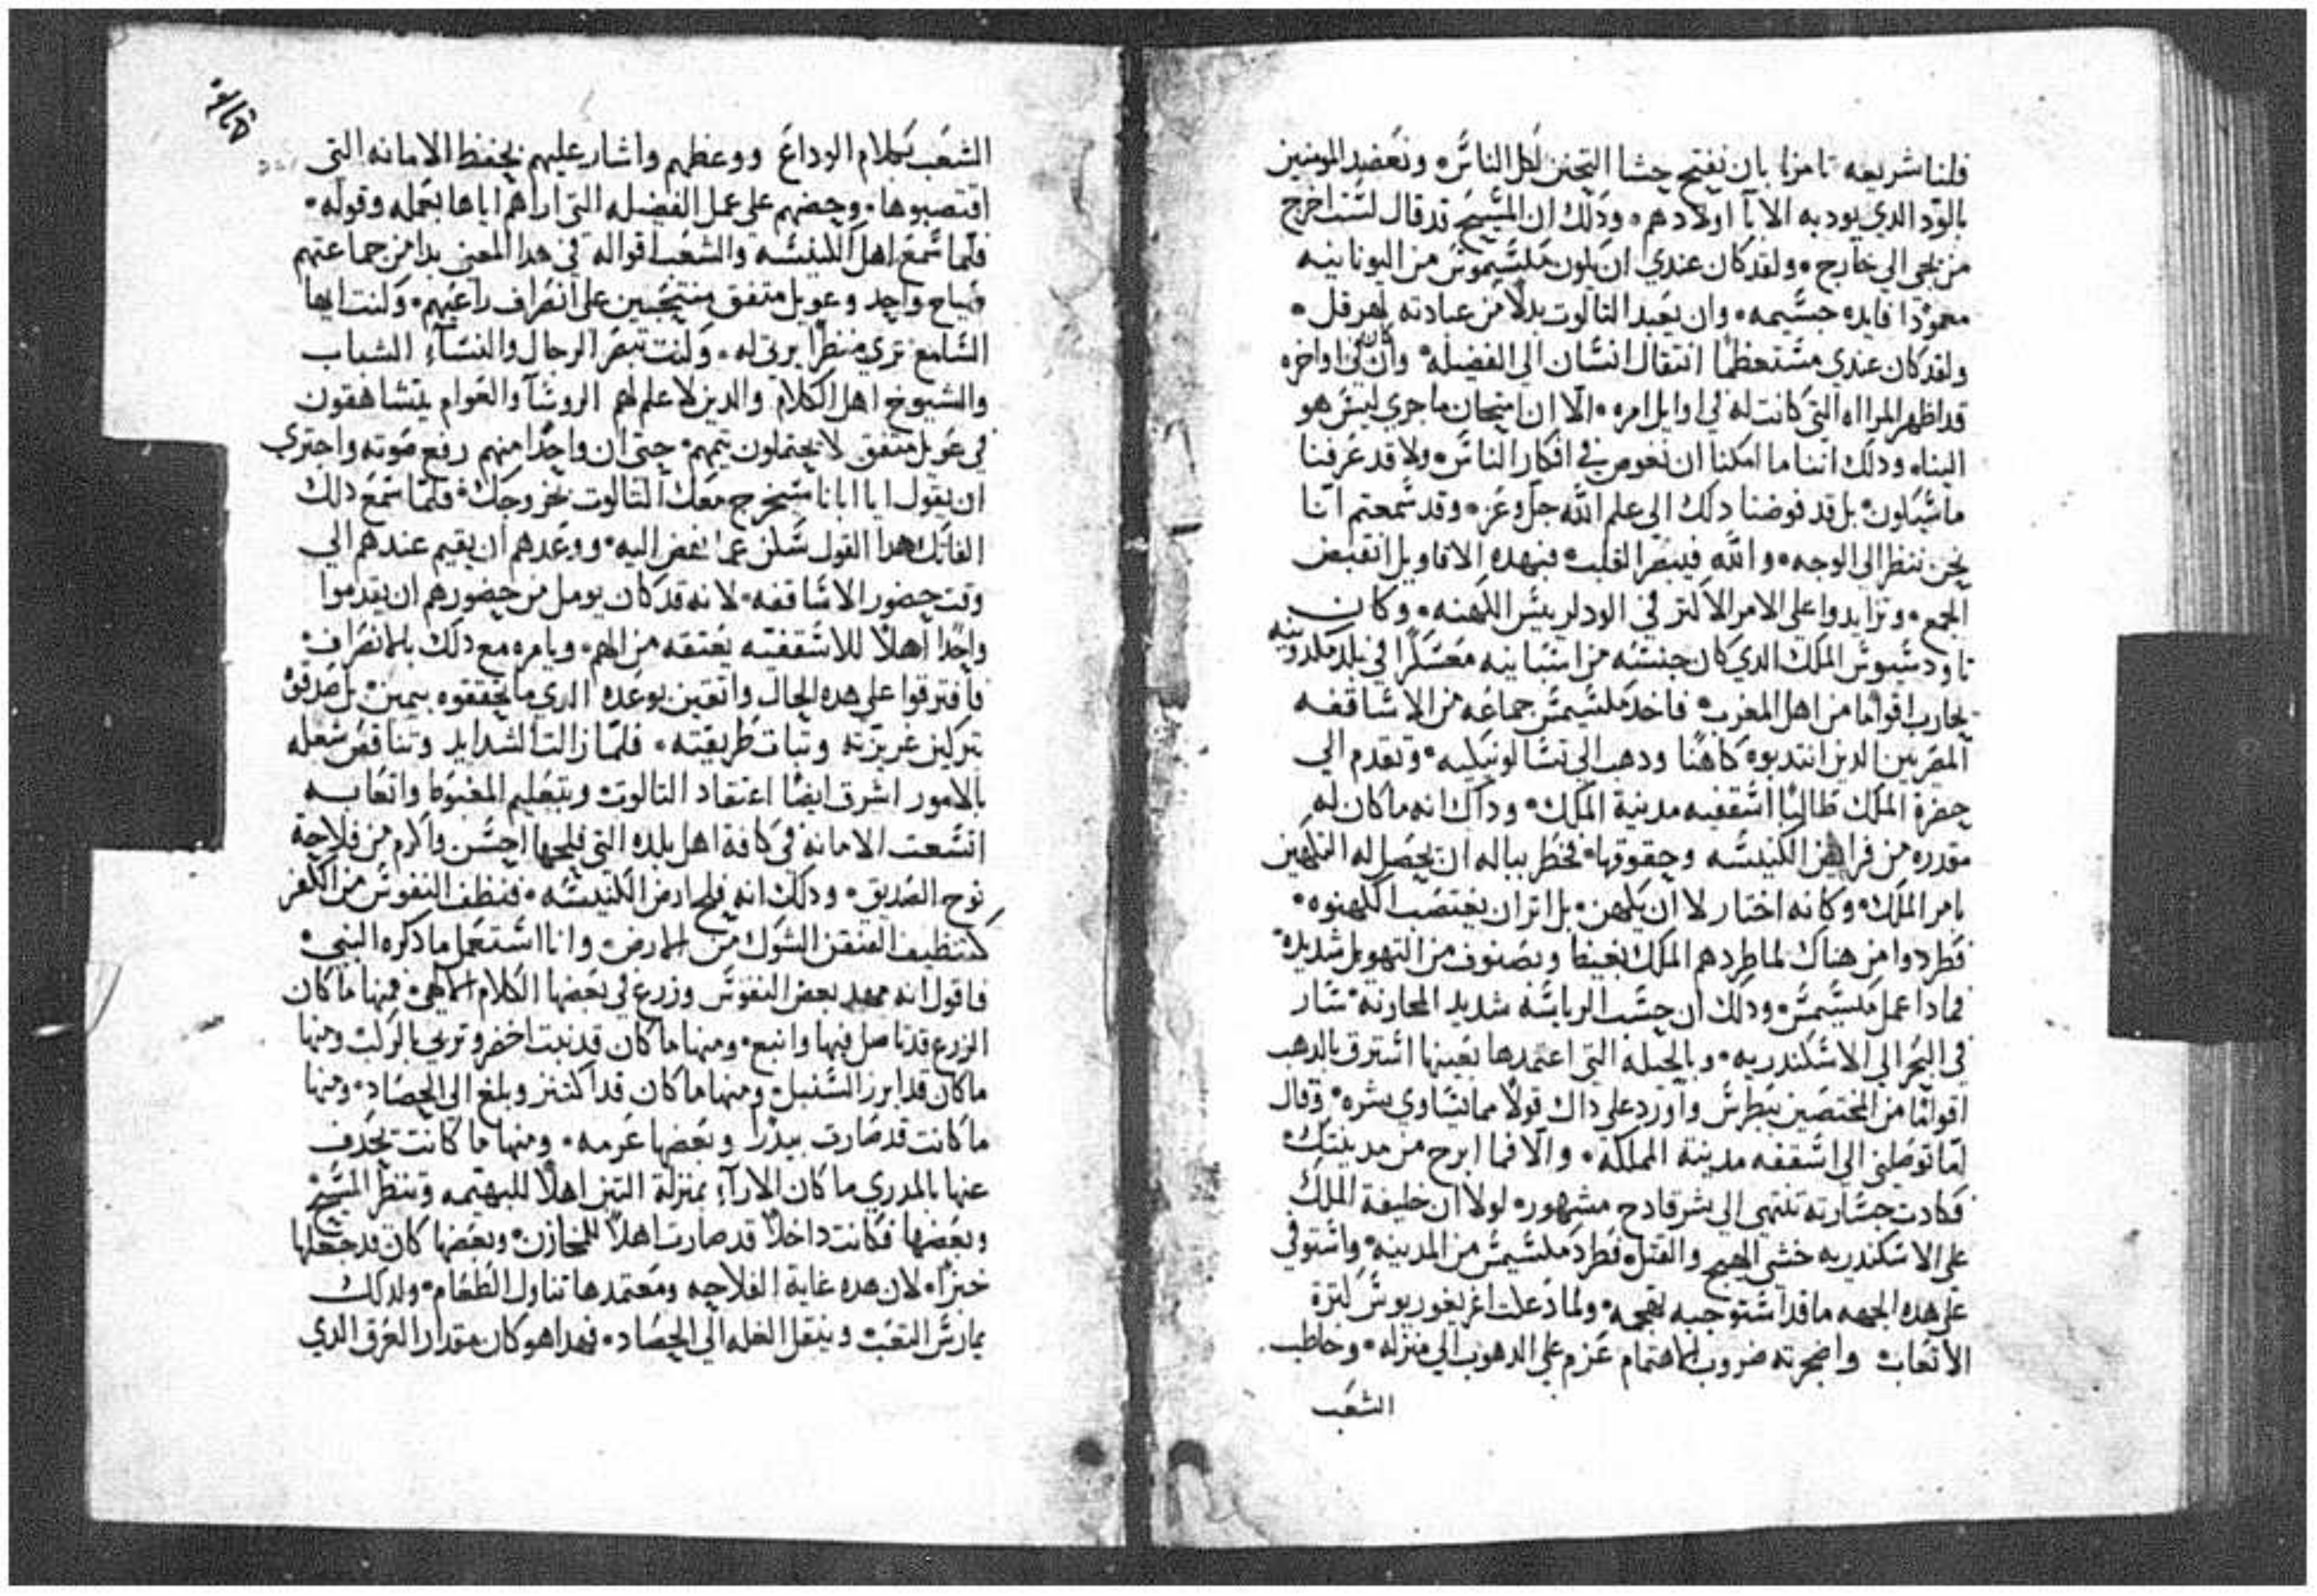 فلنا شريعه تامرنا بان نفتح حشا التحنن لكل الناس، ونعضد المومنين
بالود الدي يود به الابآ اولادهم، ودلك ان المسيح قد قال لست اخرج
من يجي الي خارج، ولقد كان عندي ان يكون مكسيموس من اليونانيه
معمودا فايده جسيمه، وان يعبد التالوت بدلا من عبادته لهرقل،
ولقد كان عندي مستعظما انتقال انسان الي الفضيله، وان كان في اواخره
قد اظهر المرااه التي كانت له في اوايل امره، الا ان امتحان ما جري ليس هو
الينا، ودلك اننا ما امكنا ان نغوص في افكار الناس، ولا قد عرفنا
ما سيكون، بل قد فوضنا دلك الي علم الله جل وعز، وقد سمعتم انا
نحن ننظر الي الوجه، والله فيبصر القلب، فبهده الاقاويل انقبض
الجمع، وتزايدوا علي الامر الاكتر في الود لرييس الكهنه، وكان
تاودسيوس الملك الدي كان جنسه من اسبانيه معسكرا في بلد مكدونيه
يحارب اقواما من اهل المغرب، فاخد مكسيمس جماعه من الاساقفه
المصريين الدين انتدبوه كاهنا ودهب الي تسالونيكيه، وتقدم الي
حضرة الملك طالبا اسقفيه مدينة الملك، وداك انه ما كان له
مقدره من فرايض الكنيسه وحقوقها، فخطر بباله ان يحصل له التكهين
بامر الملك، وكانه اختار لا ان يكهن، بل اتر ان يغتصب الكهنوه،
فطردوا من هناك لما طردهم الملك بغيظ وبصنوف من التهويل شديده،
فمادا عمل مكسيمس، ودلك ان حسب الرياسه شديد المحاربه، سار
في البحر الي الاسكندريه، وبالحيله التي اعتمدها بعينها استرق بالدهب
اقواما من المختصين ببطرس واورد علي داك قولا مما يساوي بشره، وقال
اما توصلني الي اسقفه مدينة المملكه، والا فما ابرح من مدينتك
فكادت جسارته تنتهي الي شر فادح مشهور، لولا ان خليفة الملك
علي الاسكندريه خشي الهيج والقتل، فطرد مكسيمس من المدينه، واستوفي
علي هده الجهه ما قد استوجبه لقبحه، ولما دعكت اغريغوريوس كترة
الاتعاب واضجرته ضروب الاهتمام عزم علي الدهوب الي منزله، وخاطب
الشعب
الشعب بكلام الوداع ووعظهم واشار عليهم بحفظ الامانه التي
اقتصبوها، وحضهم علي عمل الفضيله التي اراهم اياها بعمله وقوله،
فلما سمع اهل الكنيسه والشعب اقواله في هدا المعني بدا من جماعتهم
صياح واحد وعويل متفق منتحبين علي انصراف راعيهم، وكنت ايها
السامع تري منظرا يرتي له، وكنت تبصر الرجال والنسآء الشباب
والشيوخ اهل الكلام والدين لا علم لهم الروسآ والعوام يتشاهقون
في عويل متفق لا يحتملون يتمهم، حتي ان واحدا منهم رفع صوته واجتري
ان يقول ايا ابانا ستخرج معك التالوت بخروجك، فلما سمع دلك
الفاتك هدا القول سكن عما نهض اليه، ووعدهم ان يقيم عندهم الي
وقت حضور الاساقفه، لانه قد كان يومل من حضورهم ان يقدموا
واحدا اهلا للاسقفيه يعتقه من الهم، ويامره مع دلك بالانصراف،
فافترقوا علي هده الحال واتقين بوعده الدي ما يحققوه بيمين، بل صدقوه
تركين غريزته وتبات طريقته، فلما زالت الشدايد وتناقص شغله
بالامور اشرق ايضا اعتقاد التالوت وبتعليم المغبوط واتعابه
اتسعت الامانه في كافة اهل بلده التي فلحها احسن واكرم من فلاحة
نوح الصديق، ودلك انه فلح ارض الكنيسه، فنظف النفوس من الكفر
كتنظيف المتقن الشوك من الارض، وانا استعمل ما دكره النبي،
فاقول انه مهد بعض النفوس وزرع في بعضها الكلام الالاهي، فمنها ما كان
الزرع قد تاصل فيها وانبع، ومنها ما كان قد نبت اخضر وتربي بالركب ومنها
ما كان قد ابرز السنبل، ومنها ما كان قد اكتنز وبلغ الي الحصاد، ومنها
ما كانت قد صارت بيدرا وبعضها عرمه، ومنها ما كانت تحدف
عنها بالمدري ما كان الارآء بمنزلة التبن اهلا للبهيمه وتنتظر المسيح
وبعضها فكانت داخلا قد صارت اهلا للمخازن، وبعضها كان قد جعلها
خبزا، لان هده غاية الفلاحيه ومعتمدها تناول الطعام، ولدلك
يمارس التعب وينقل الغله الي الحصاد، فهدا هو كان مقدار العرق الدي